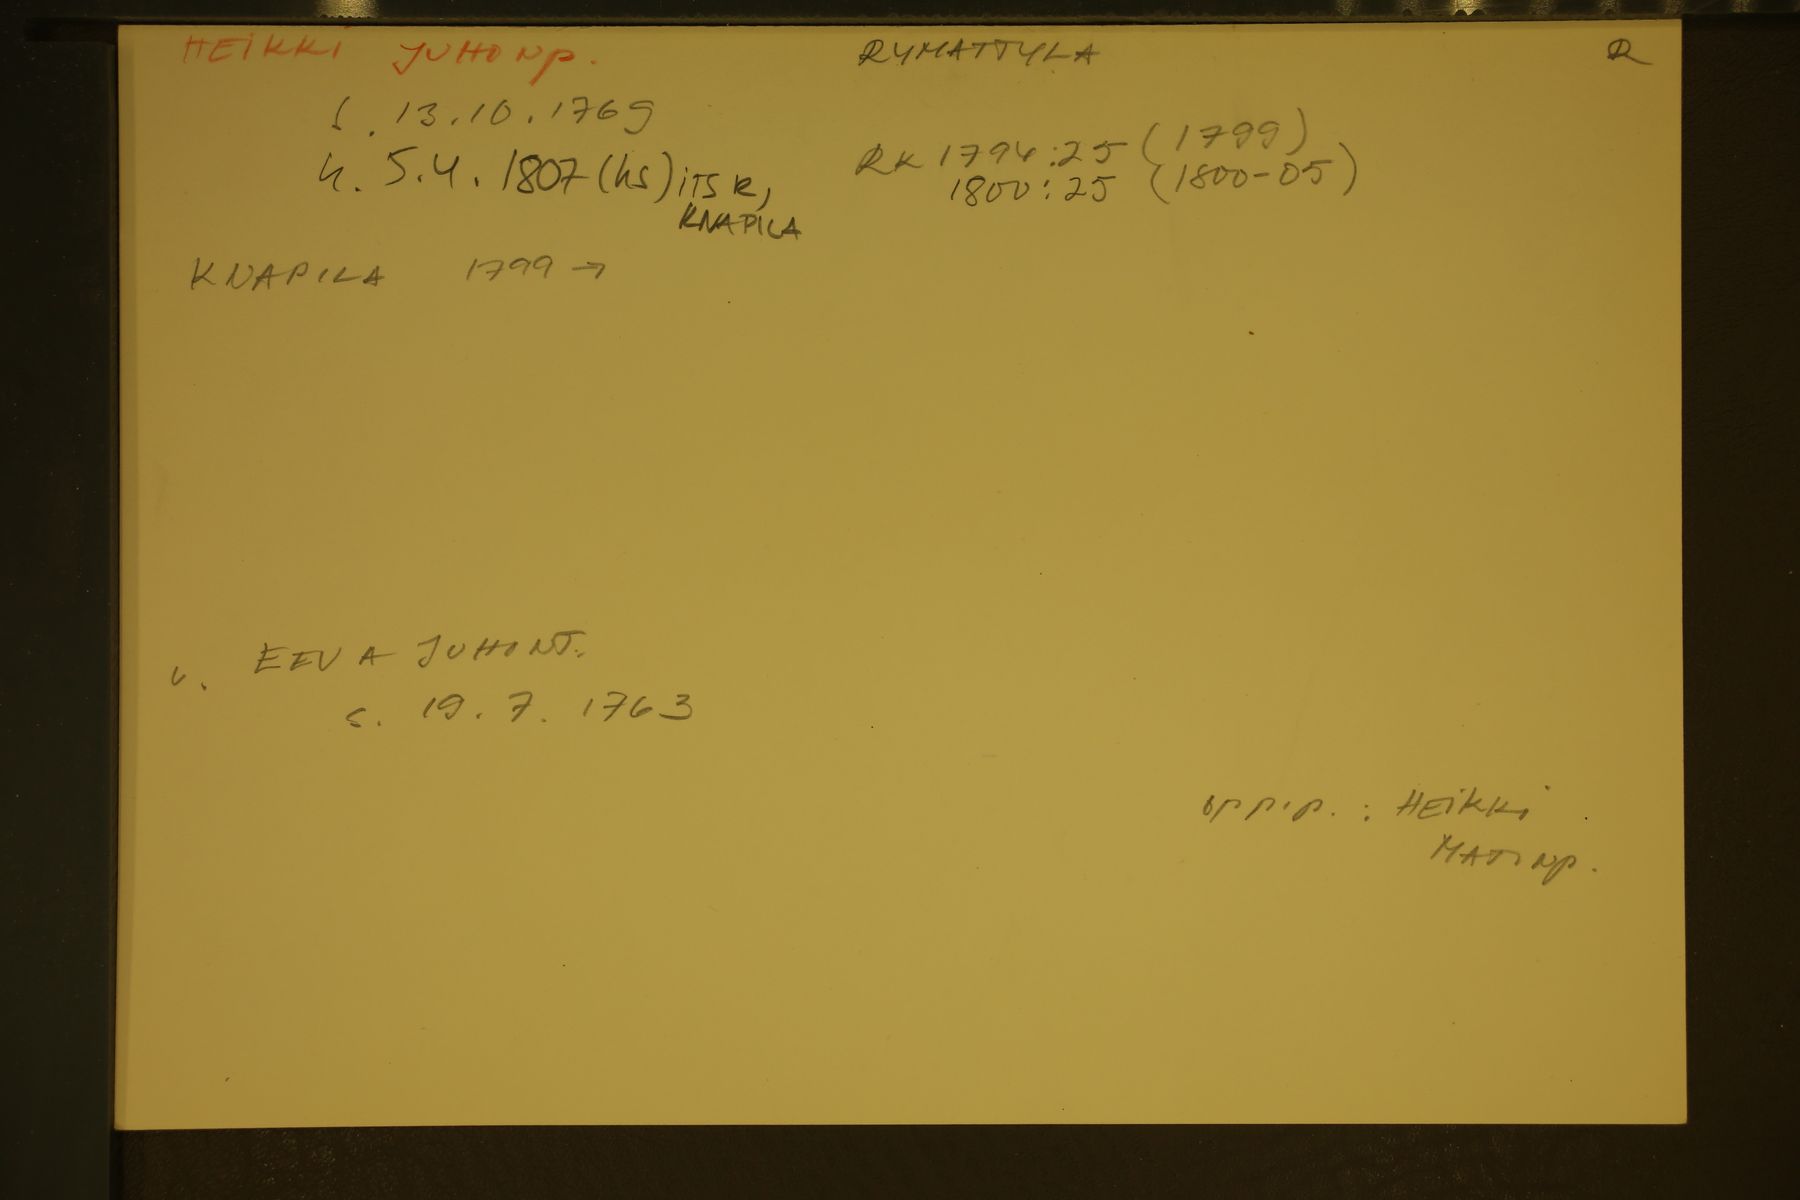 HEIKKI JUHONP. RYMÄTTYLÄ R
s. 13.10.1769
k. 5.4.1807 (hs) ITSR,
KNAPILA
RK 1794:25 (1799)
1800:25 (1800-05)
KNAPILA 1799 →
v. EEVA JUHONT.
s. 19.7.1763
oppip.: HEIKKI
MATINP.